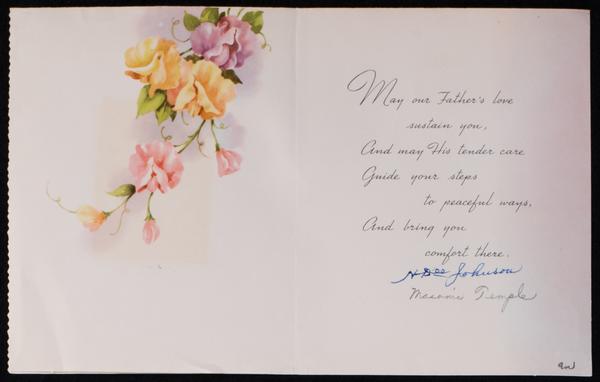 May our Father's love
sustain you,
And may His tender care
Guide your steps
to peaceful ways,
And bring you
comfort there.
Dee Johnson
Masonic Temple